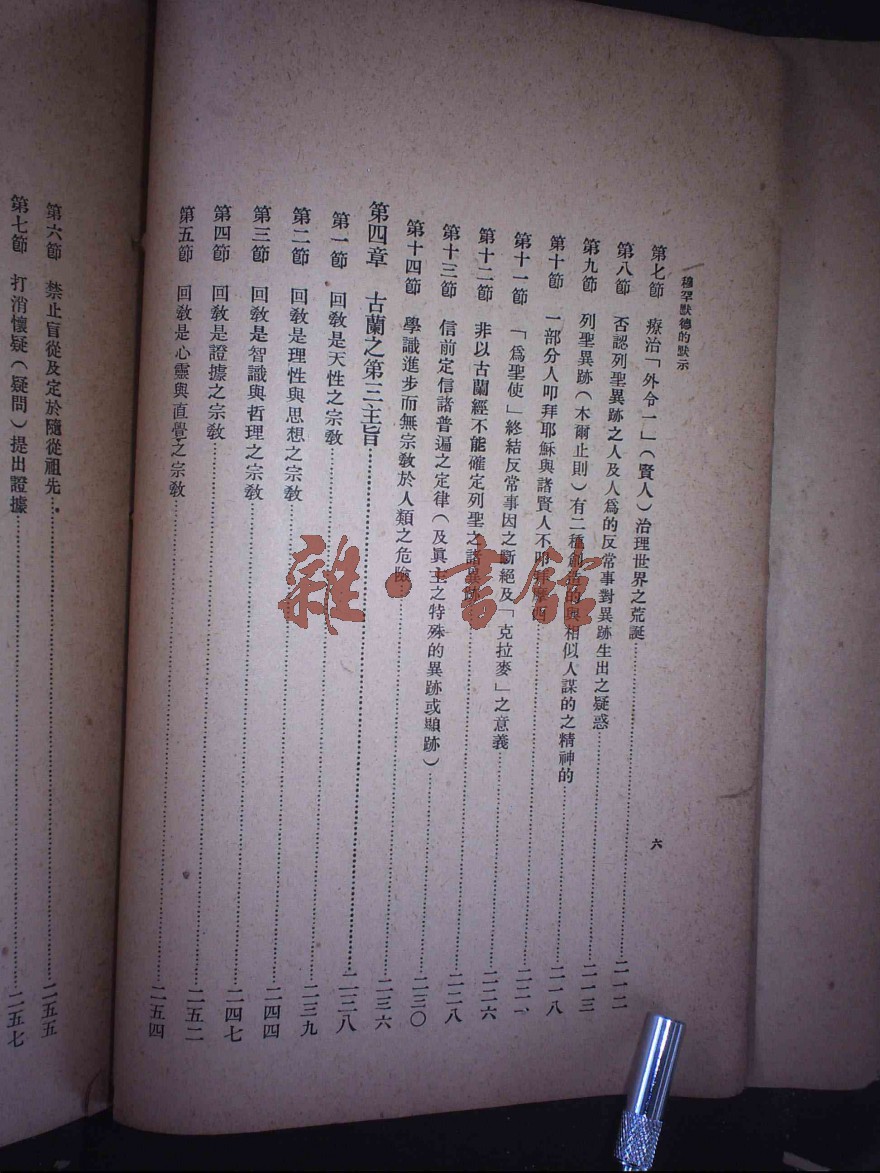 穆罕默德的默示
六
第七節 療治「外令一」(賢人)治理世界之荒誕……二一二
第八節 否認列聖異跡之人及人爲的反常事對異跡生出之疑惑……二一三
第九節 列聖異跡(木爾止則)有二種創造的與相似人謀的之精神的……二一八
第十節 一部分人叩拜耶穌與諸賢人不叩拜摩西……二二
第十一節 「爲聖使」終結反常事因之斷絕及「克拉麥」之意義……二二六
第十二節 非以古蘭經不能確定列聖之諸異跡……二二八
第十三節 信前定信諸普遍之定律(及眞主之特殊的異跡或顯跡)……二三〇
第十四節 學識進步而無宗敎於人類之危險……二三六
第四章 古蘭之第三主旨……二三八
第一節 回敎是天性之宗敎……二三九
第二節 回敎是理性與思想之宗敎……二四四
第三節 回敎是智識與哲理之宗敎……二四七
第四節 回敎是證據之宗敎……二五二
第五節 回敎是心靈與直覺之宗敎……二五四
第六節 禁止盲從及定於隨從祖先……二五五
第七節 打消懷疑(疑問)提出證據……二五七
雜·書館